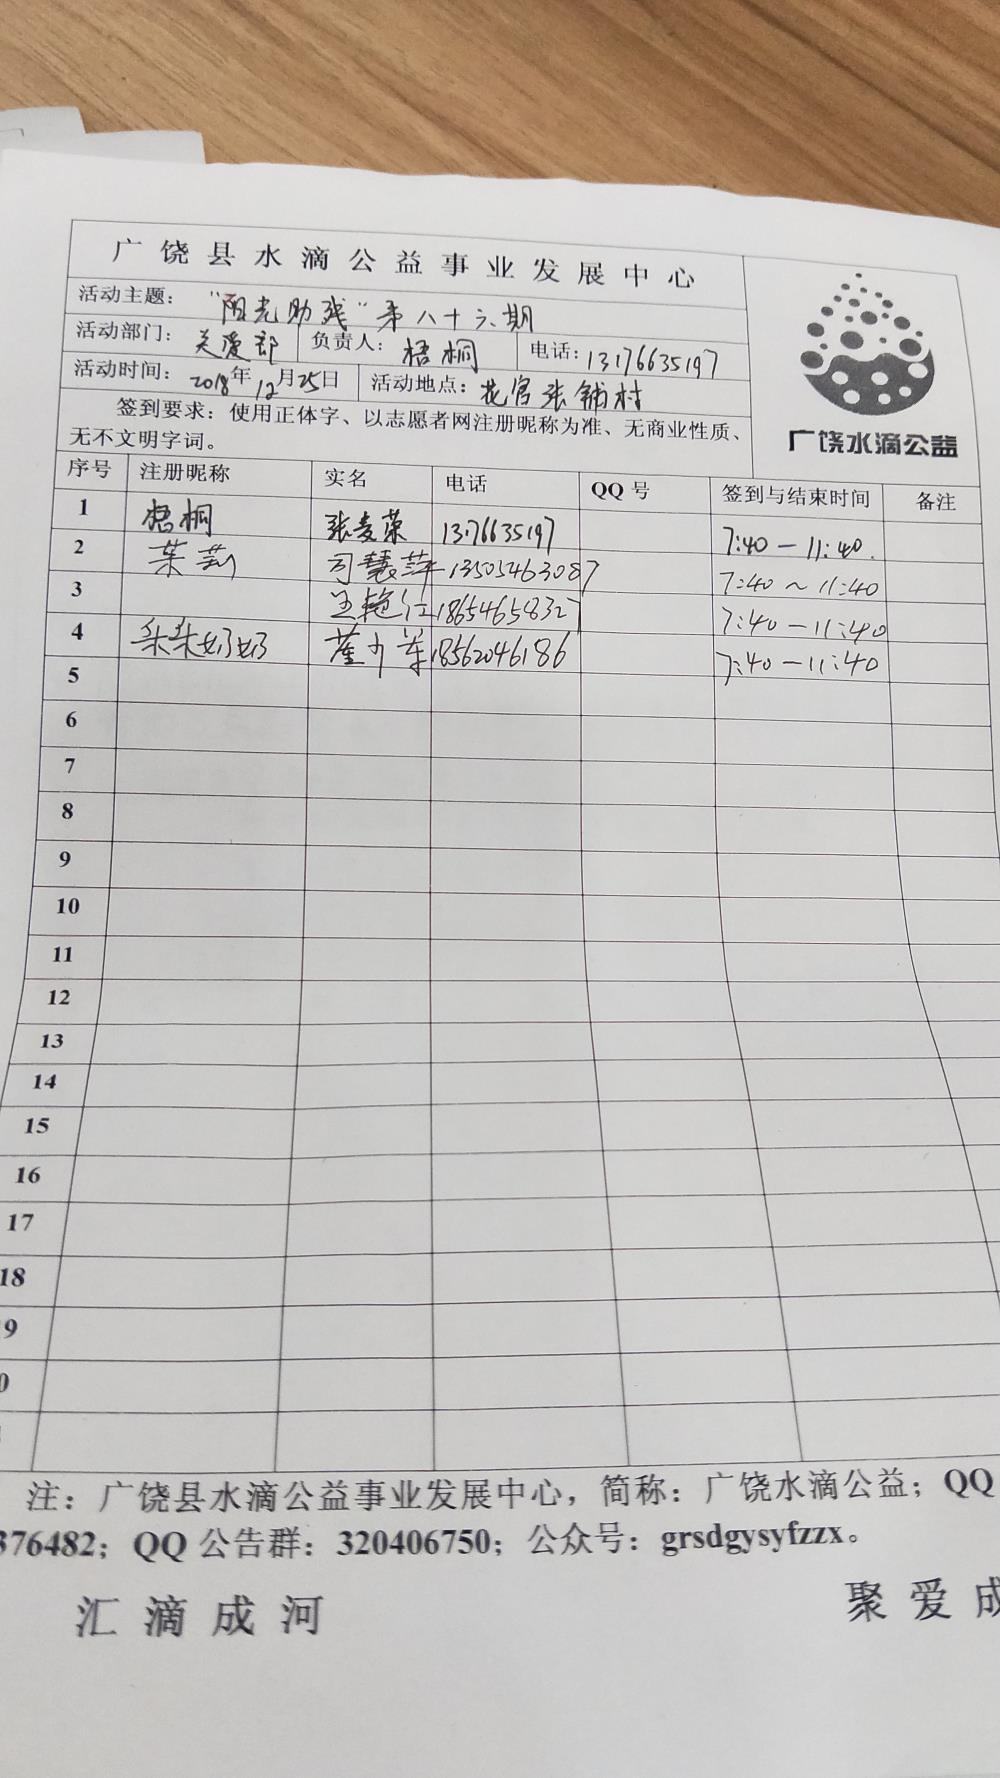 广饶县水滴公益事业发展中心
活动主题： “阳光助残”第八十六期
活动部门： 关爱部 负责人： 梧桐 电话：13176635197
活动时间： 2018年12月25日 活动地点： 花官张铺村
签到要求：使用正体字、以志愿者网注册昵称为准、无商业性质、
无不文明字词。
广饶水滴公益
序号 注册昵称 实名 电话 QQ 号 签到与结束时间 备注
1 梧桐 张麦荣 13176635197 7:40—11:40.
2 茉莉 司慧萍 13505463087 7:40～11:40
3 王艳红 18654658327 7:40—11:40
4 朵朵奶奶 18562046186 7:40—11:40
5
6
7
8
9
10
11
12
13
14
15
16
17
18
9
0
注：广饶县水滴公益事业发展中心，简称：广饶水滴公益；QQ
376482；QQ 公告群：320406750；公众号：grsdgysyfzzx。
汇滴成河 聚爱成